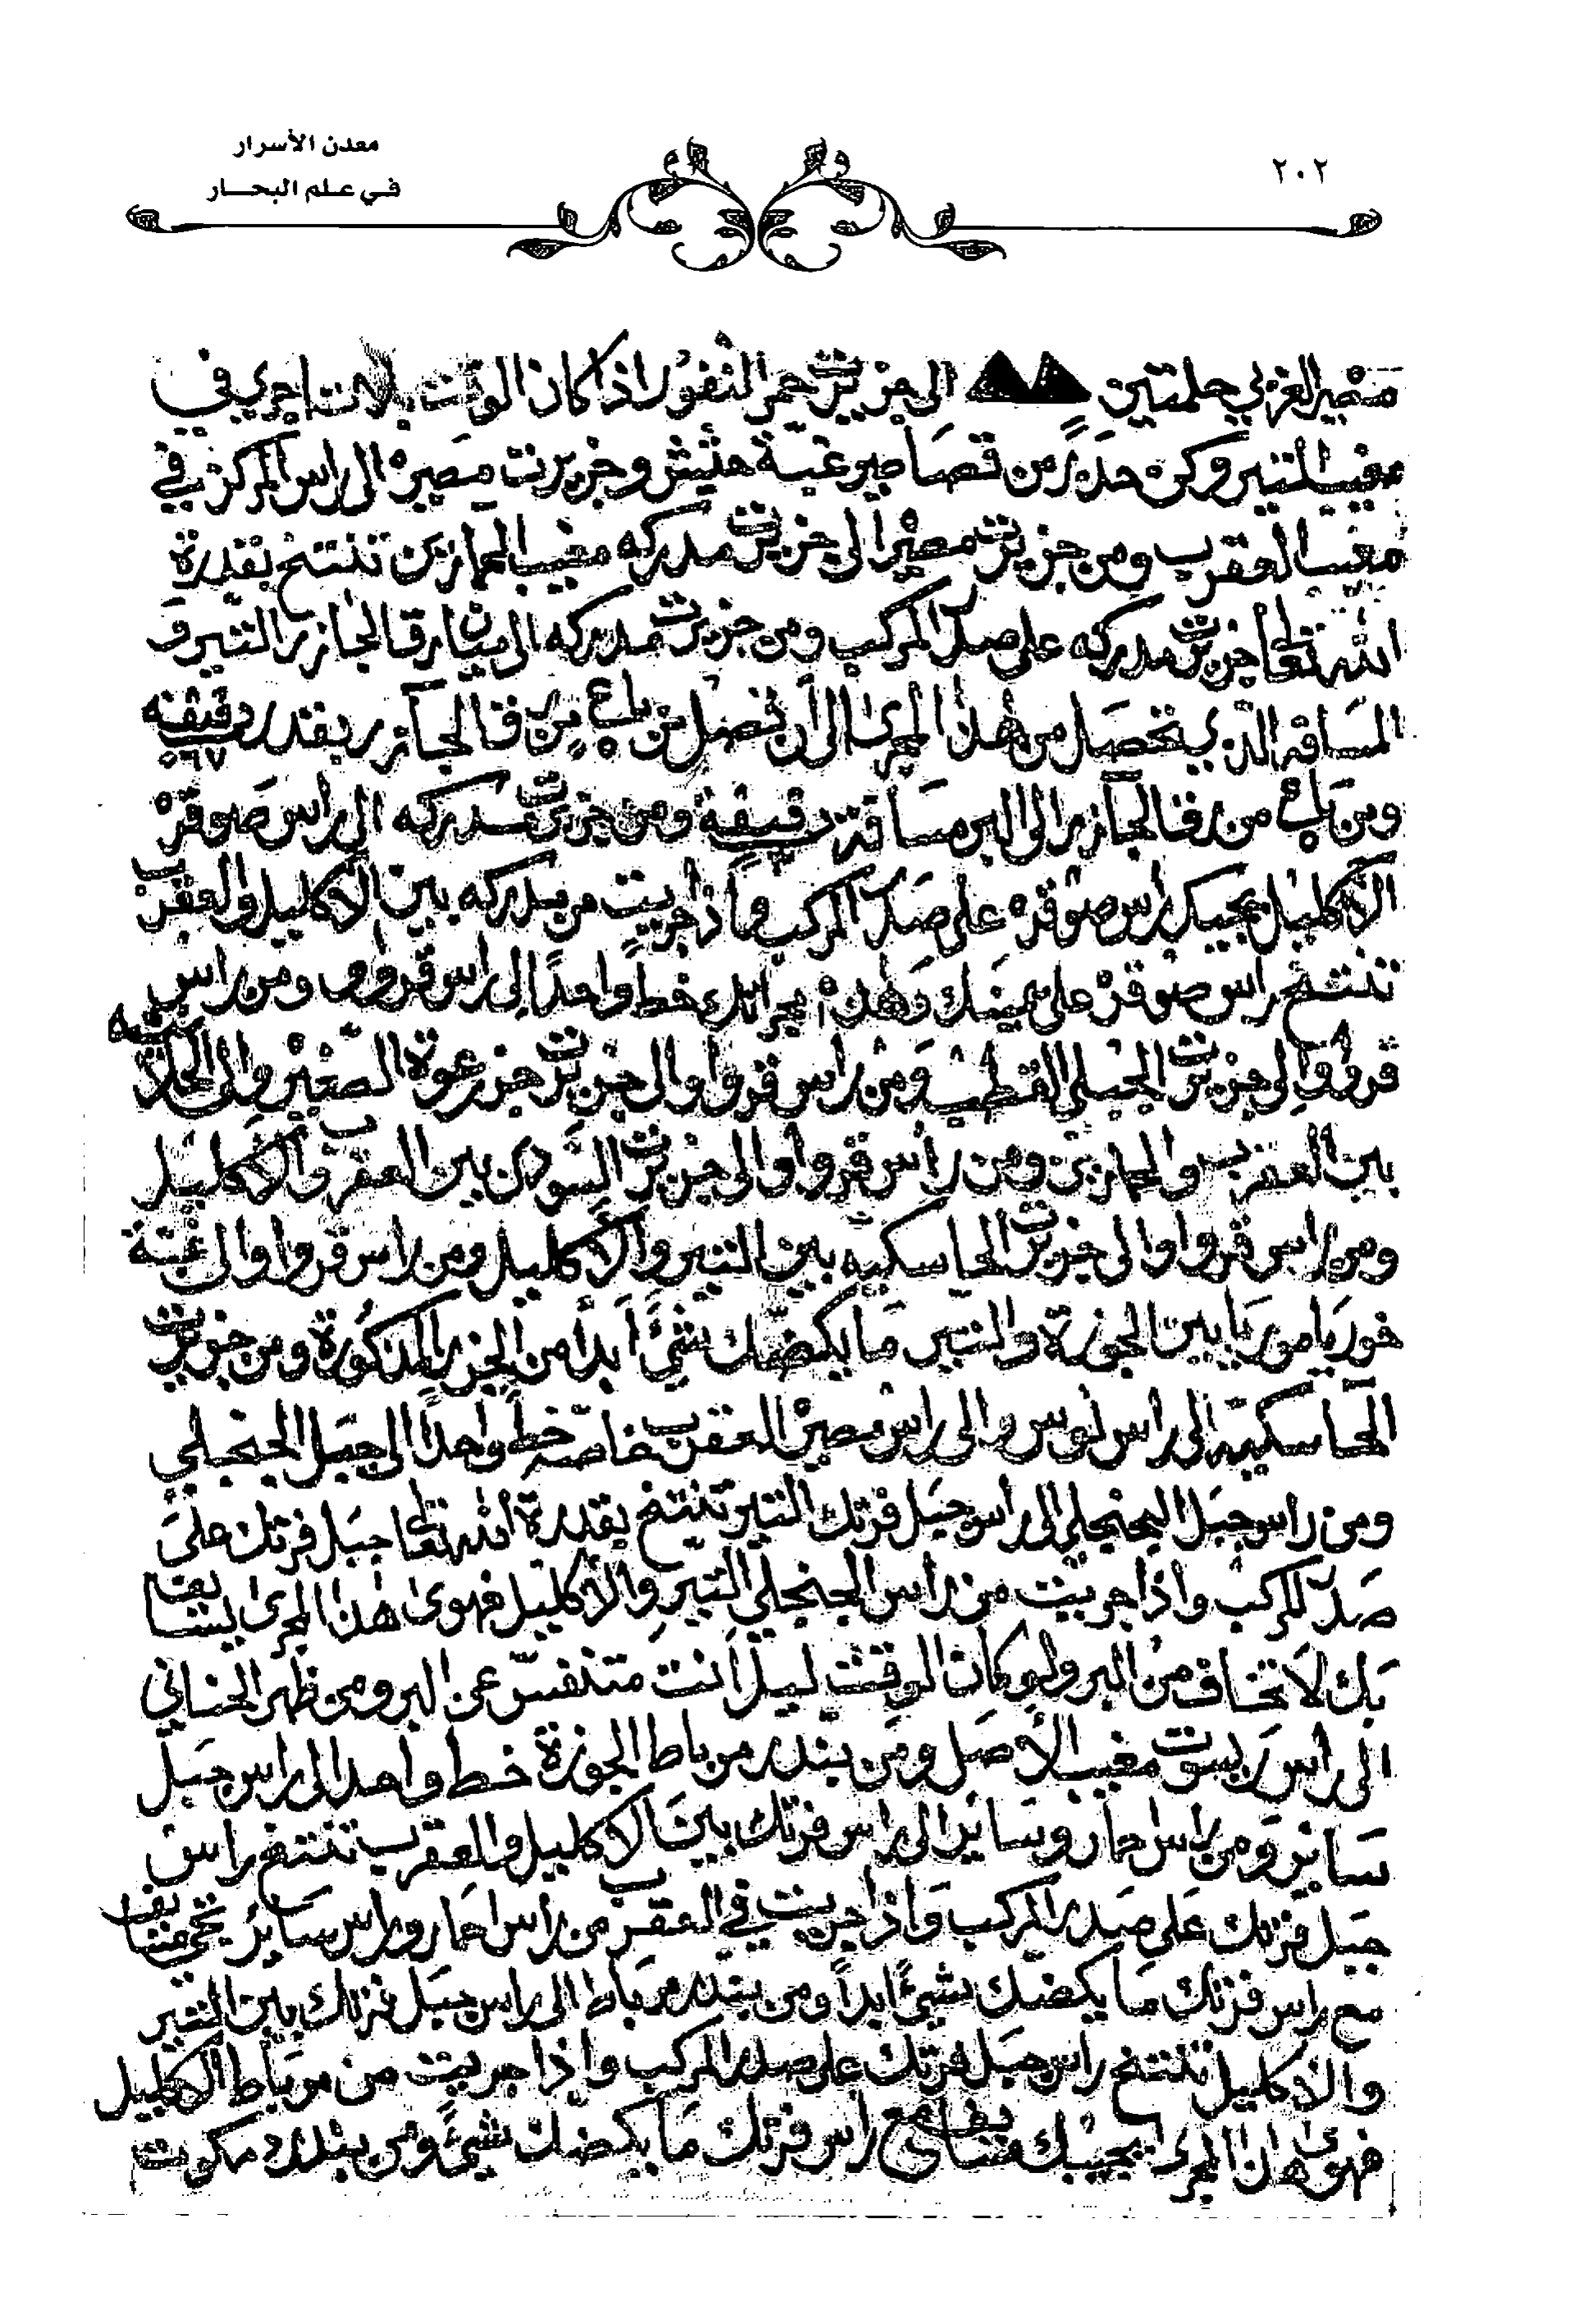 معدن الأسرار
في علم البحار
٢٠٢
مصير الغربي حلمتين الى جزيرت حمر النفور اذا كان الوقت بلات اجري في
مغيب التير وكن حذر من قصاصير غبة هيش وجزيرت مصيره الى راس المركز في
مغيب العقرب ومن جزيرت مصيرا الى جزيرت مدركه مغيب الحمارين تنتخ بقدرة
الله تعا جزيرت مدركه على صدر المركب ومن جزيرت مدركه الى رقا الجازر التير و
المسافه الذي تحصل من هذا المجرى الى أن تصل من باع من رقا الجازر بقدر دقيقه ٥٦٧
ومن باع من رقا الجازر الى البر مسافة دقيقة ومن جزيرت مدركه الى راس صوقره
الاكليل يجيك راس صوقره على صدر المركب واذا جريت من مدركه بين الاكليل والعقرب
تنتخ راس صوقره على يمينك وهذه مجراتك خط واحدا الى راس قرواو ومن راس
قرواو الى جزيرت الجبلي القطب ومن راس قرواو والى جزيرت جزرعوة الصغير والى الحلانيه
بين العقرب والحمارين ومن راس قرواو والى جزيرت السودى بين العقرب والاكليل
ومن راس قرواو والى جزيرت الحاسكيه بين التير والاكليل ومن راس قرواو والى غبة
خوريا موريا بين الجوزة والتير ما يكضك شئ ابدا من الجزر المذكورة ومن جزيرت
الحاسكيه الى راس لوس والى راس مصير العقرب خاصه خط واحدا الى جبل الجنجلي
ومن راس جبل الجنجلي الى راس جبل فرتك التير تنتخ بقدرة الله تعا جبل فرتك على
صدر المركب واذا جريت من راس الجنجلي التير والاكليل فهوى هذا المجرى يسايف
بك لا تخاف من البر ولو كان الوقت ليل انت متنفس عن البر ومن ظهر الحناني
الى راس ريسوت مغيب الاصل ومن بندر مرباط الجوزة خط واحد الى راس جبل
ساير ومن راس حمار وساير الى راس فرتك بين الاكليل والعقرب تنتخ راس
جبل فرتك على صدر المركب واذا جريت في العقرب من راس احمار وراس ساير تجي مسايف
مع راس فرتك ما يكضك شئ ابدا ومن بندر مرباط الى راس جبل فرتك بين التير
والاكليل تنتخ راس جبل فرتك على صدر المركب واذا جريت من مرباط الاكليل
فهوى هذا المجرى يجيبك مسايف مع راس فرتك ما يكضك شئ ومن بندر مكوت